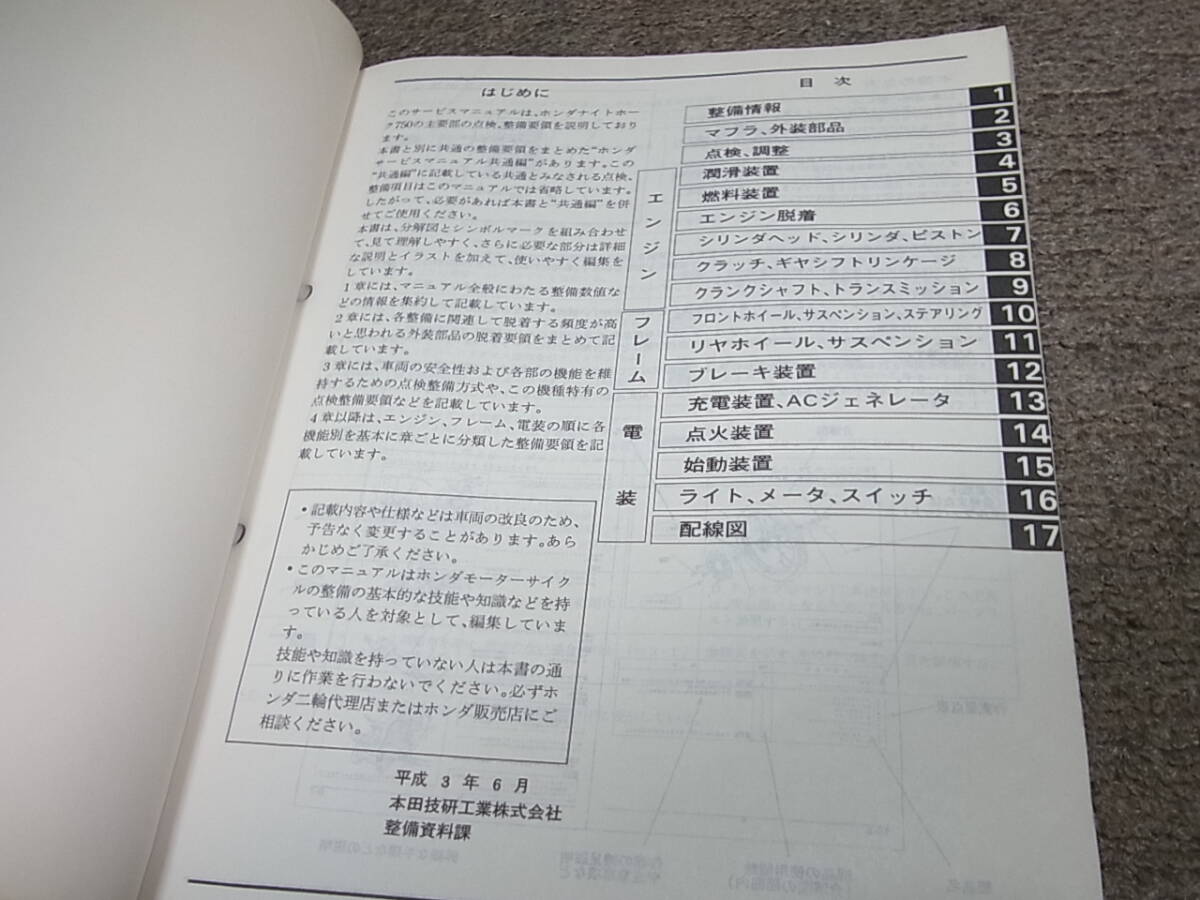 はじめに
このサービスマニュアルは、ホンダナイトホー
ク750の主要部の点検、整備要領を説明しており
ます。
本書と別に共通の整備要領をまとめた“ホンダ
サービスマニュアル共通編”があります。この
“共通編”に記載している共通とみなされる点検、
整備項目はこのマニュアルでは省略しています。
したがって、必要があれば本書と“共通編”を併
せてご使用ください。
本書は、分解図とシンボルマークを組み合わせ
て、見て理解しやすく、さらに必要な部分は詳細
な説明とイラストを加えて、使いやすく編集を
しています。
1章には、マニュアル全般にわたる整備数値な
どの情報を集約して記載しています。
2章には、各整備に関連して脱着する頻度が高
いと思われる外装部品の脱着要領をまとめて記
載しています。
3章には、車両の安全性および各部の機能を維
持するための点検整備方式や、この機種特有の
点検整備要領などを記載しています。
4章以降は、エンジン、フレーム、電装の順に各
機能別を基本に章ごとに分類した整備要領を記
載しています。
•記載内容や仕様などは車両の改良のため、
予告なく変更することがあります。あら
かじめご了承ください。
•このマニュアルはホンダモーターサイク
ルの整備の基本的な技能や知識などを持
っている人を対象として、編集していま
す。
技能や知識を持っていない人は本書の通
りに作業を行わないでください。必ずホ
ンダ二輪代理店またはホンダ販売店にご
相談ください。
平成 3 年 6 月
本田技研工業株式会社
整備資料課
目 次
整備情報 1
マフラ、外装部品 2
点検、調整 3
エンジン
潤滑装置 4
燃料装置 5
エンジン脱着 6
シリンダヘッド、シリンダ、ピストン 7
クラッチ、ギヤシフトリンケージ 8
クランクシャフト、トランスミッション 9
フレーム
フロントホイール、サスペンション、ステアリング 10
リヤホイール、サスペンション 11
ブレーキ装置 12
電装
充電装置、ACジェネレータ 13
点火装置 14
始動装置 15
ライト、メータ、スイッチ 16
配線図 17